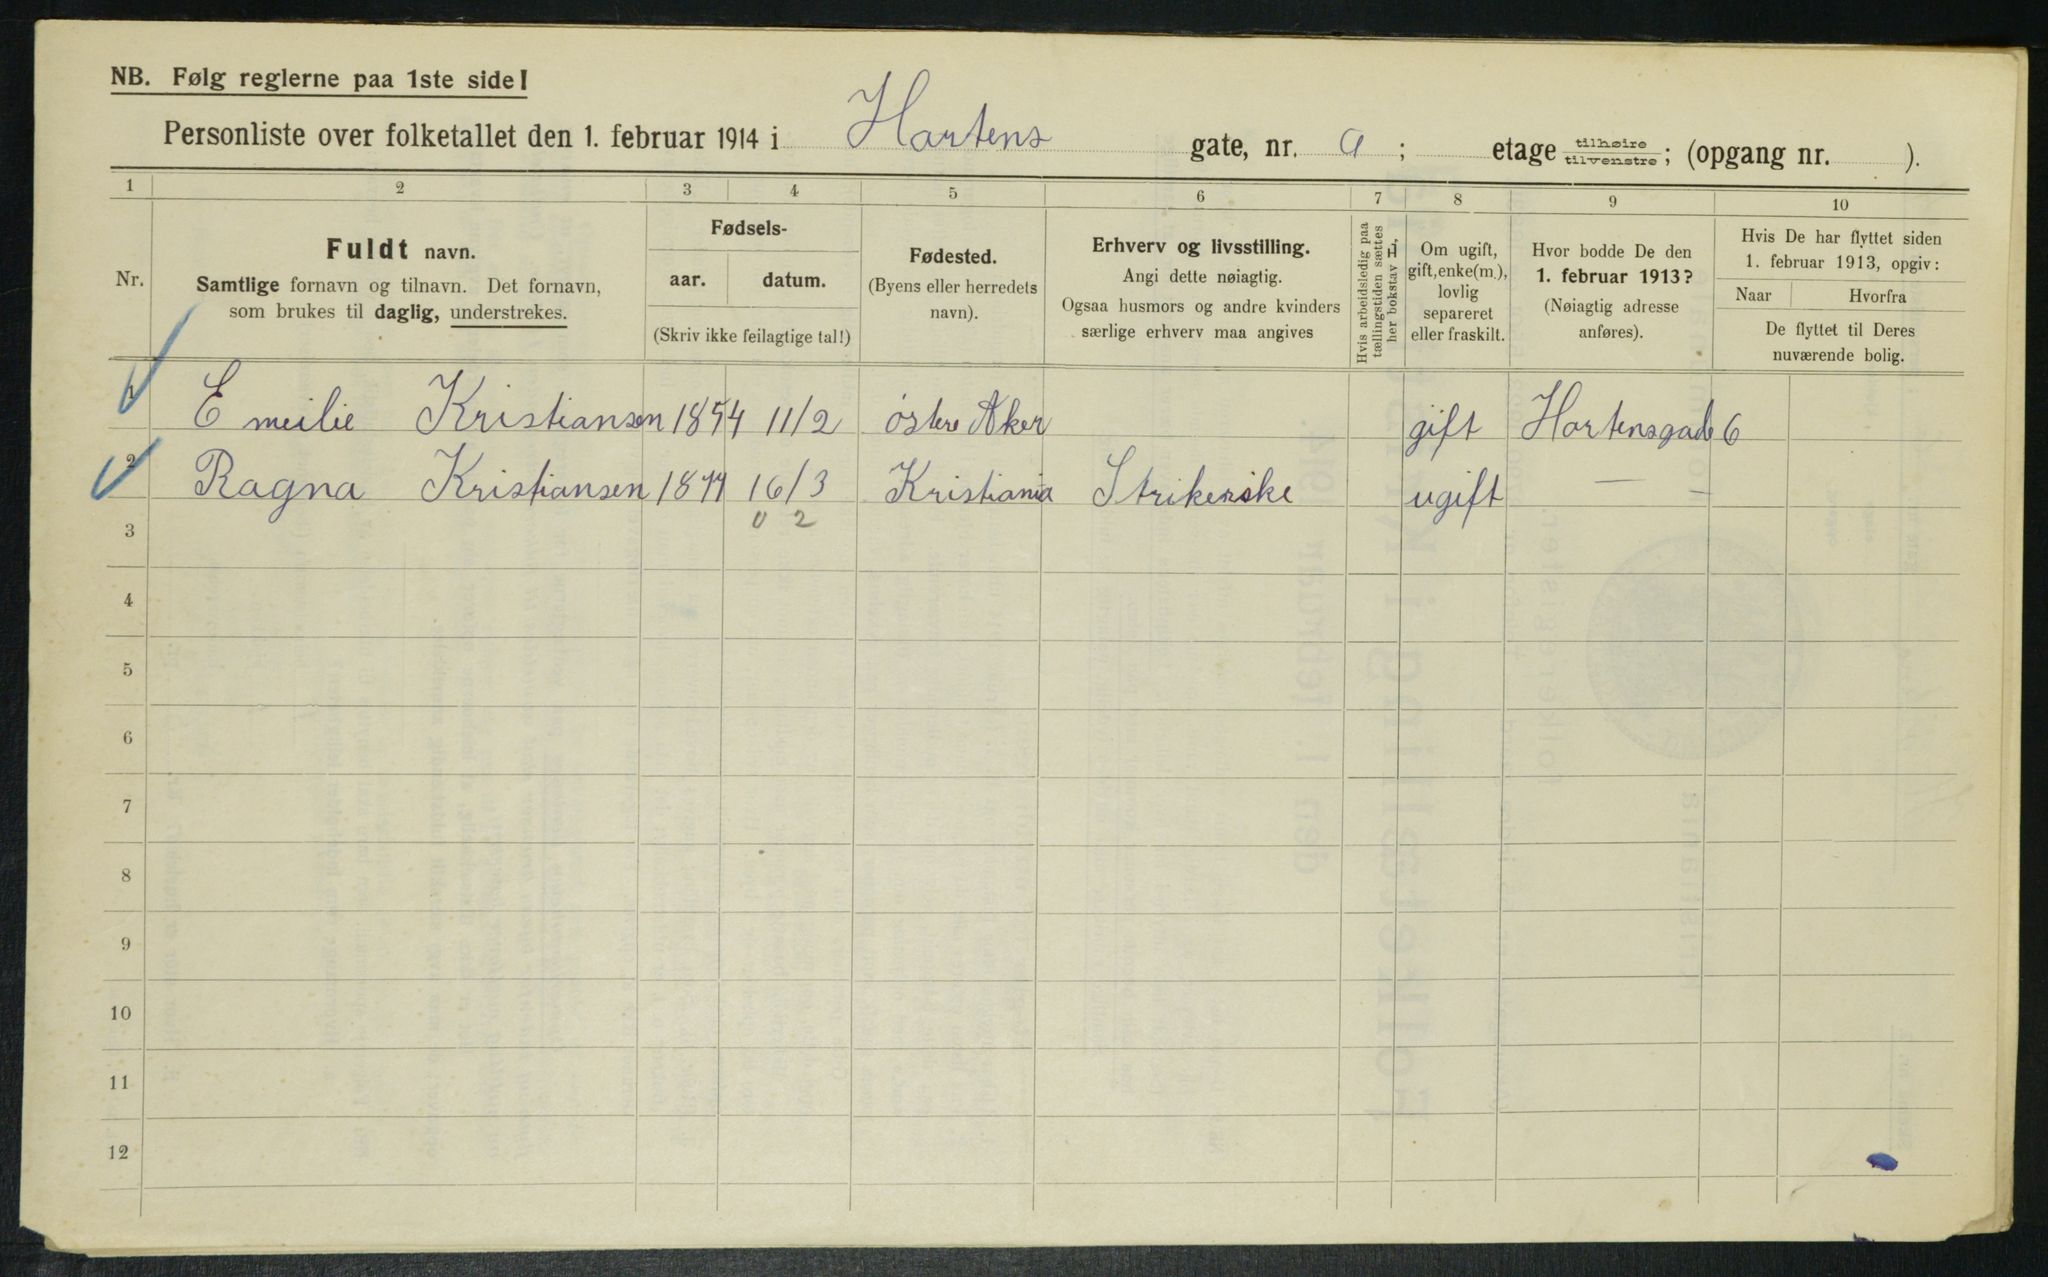 NB. Følg reglerne paa 1ste side!
Personliste over folketallet den 1. februar 1914 i Hortens gate, nr. ; etage tilhøire tilvenstre; (opgang nr. ).
1 2 3 4 5 6 7 8 9 10
Nr.
Fuldt navn.
Samtlige fornavn og tilnavn. Det fornavn,
som brukes til daglig, understrekes.
Fødsels-
aar. datum.
(Skriv ikke feilagtige tal!)
Fødested.
(Byens eller herredets
navn).
Erhverv og livsstilling.
Angi dette nøiagtig.
Ogsaa husmors og andre kvinders
særlige erhverv maa angives
Hvis arbeidsledig paa
tællingstiden sættes
her bokstav L.
Om ugift,
gift, enke(m.),
lovlig
separeret
eller fraskilt.
Hvor bodde De den
1. februar 1913?
(Nøiagtig adresse
anføres).
Hvis De har flyttet siden
1. februar 1913, opgiv:
Naar Hvorfra
De flyttet til Deres
nuværende bolig.
1 Emeilie Kristiansen 1854 11/2 østere Aker gift Hortensgade 6
2 Ragna Kristiansen 16/3 Kristiania Strikerske ugift — –
0 2
3
4
5
6
7
8
9
10
11
12